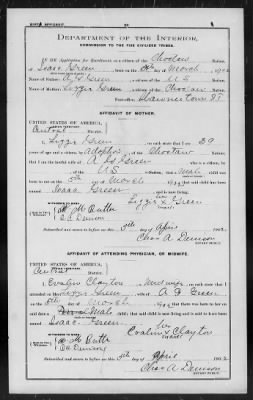 BIRTH AFFIDAVIT.
DEPARTMENT OF THE INTERIOR,
COMMISSION TO THE FIVE CIVILIZED TRIBES.
IN RE Application for Enrollment, as a citizen of the Choctaw Nation,
of Isaac Green, born on the 8th day of March, 190
Name of Father: A. D. Green a citizen of the U S Nation.
Name of Mother: Lizzie Green a citizen of the Choctaw Nation.
Post-office,
AFFIDAVIT OF MOTHER.
UNITED STATES OF AMERICA,
Central District.
I, Lizzie Green, on oath state that I am 39
years of age and a citizen by adoption, of the Choctaw Nation;
that I am the lawful wife of A. D. Green, who is a citizen, by
of the U S Nation; that a male child was
born to me on day of March, that said child has been
named Isaac Green, and is now living.
Lizzie x Green
Subscribed and sworn to before me this 5th day of April, 1902.
Chas A. Denison
NOTARY PUBLIC.
AFFIDAVIT OF ATTENDING PHYSICIAN, OR MIDWIFE.
UNITED STATES OF AMERICA,
District.
I, Evaline Clayton, a midwife, on oath state that I
attended on Mrs. Lizzie Green, wife of A D Green
on the 8th day of March, that there was born to her on
said date a male child; that said child is now living and is said to have been
named Isaac Green.
her
Evaline x Clayton
mark
Subscribed and sworn to before me this 5th day of April, 1902.
Chas A. Denison
NOTARY PUBLIC.